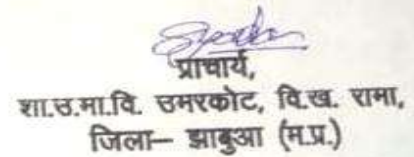 प्राचार्य,
शा.उ.मा.वि. उमरकोट, वि.ख. रामा,
जिला– झाबुआ (म.प्र.)